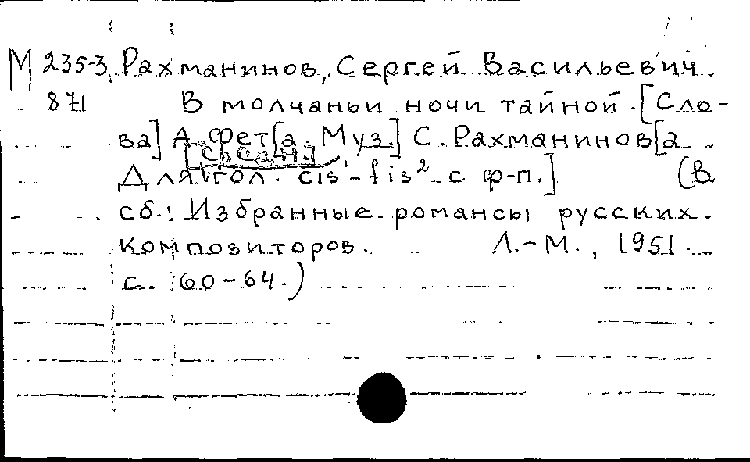 М 235-3 Рахманинов, Сергей Васильевич.
871 В молчаньи ночи тайной. [Сло-
ва] А. Фет[а. Муз.] С. Рахманинов[а.
Для гол. cis¹-fis² с ф-п.] (В
сб.: Избранные романсы русских
композиторов. Л.-М., 1951.
с. 60-64.)